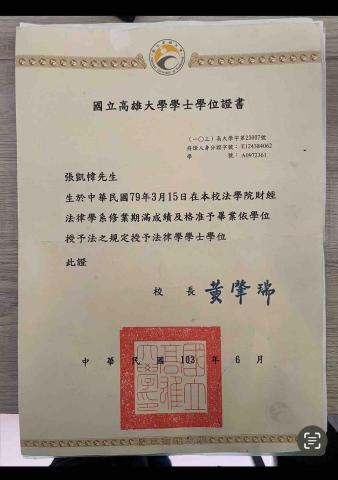 國立高雄大學學士學位證書
（一〇三）高大學字第23007號
持證人身分證字號：E124384062
學　　　號：A0972361
張凱幃先生
生於中華民國79年3月15日在本校法學院財經
法律學系修業期滿成績及格准予畢業依學位
授予法之規定授予法律學學士學位
此證
校長 黃肇瑞
國立高雄大學印
中華民國103年6月